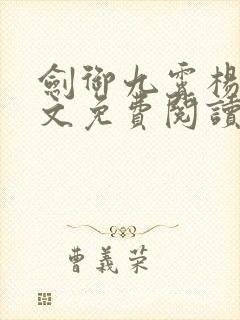 劍御九霄楊
文免費閱讀
曹義荣